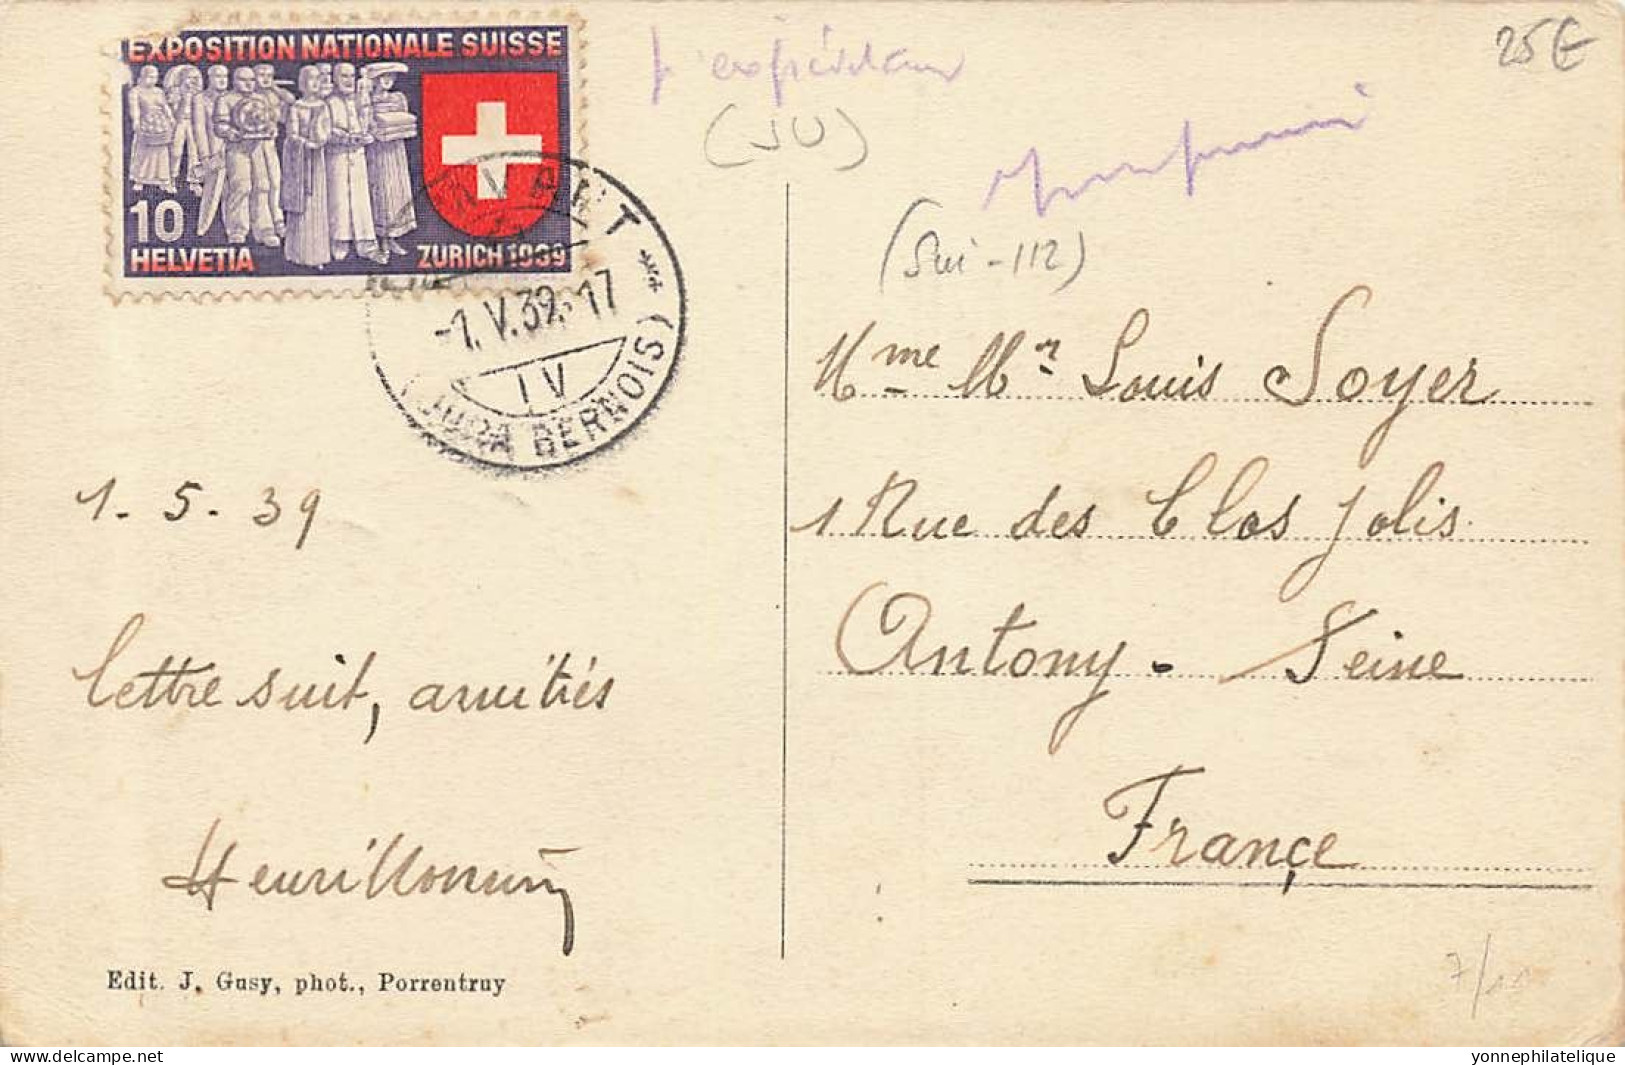 EXPOSITION NATIONALE SUISSE
10
HELVETIA
ZURICH 1939
-1.V.39.-17
IV
(JURA BERNOIS)
25€
(JU)
(Sui-112)
Mme Mr Louis Soyer
1 Rue des Clos Jolis.
Antony - Seine
France
1-5-39
lettre suit, amitiés
Henri
Edit. J. Gusy, phot., Porrentruy
delcampe.net
yonnephilatelique